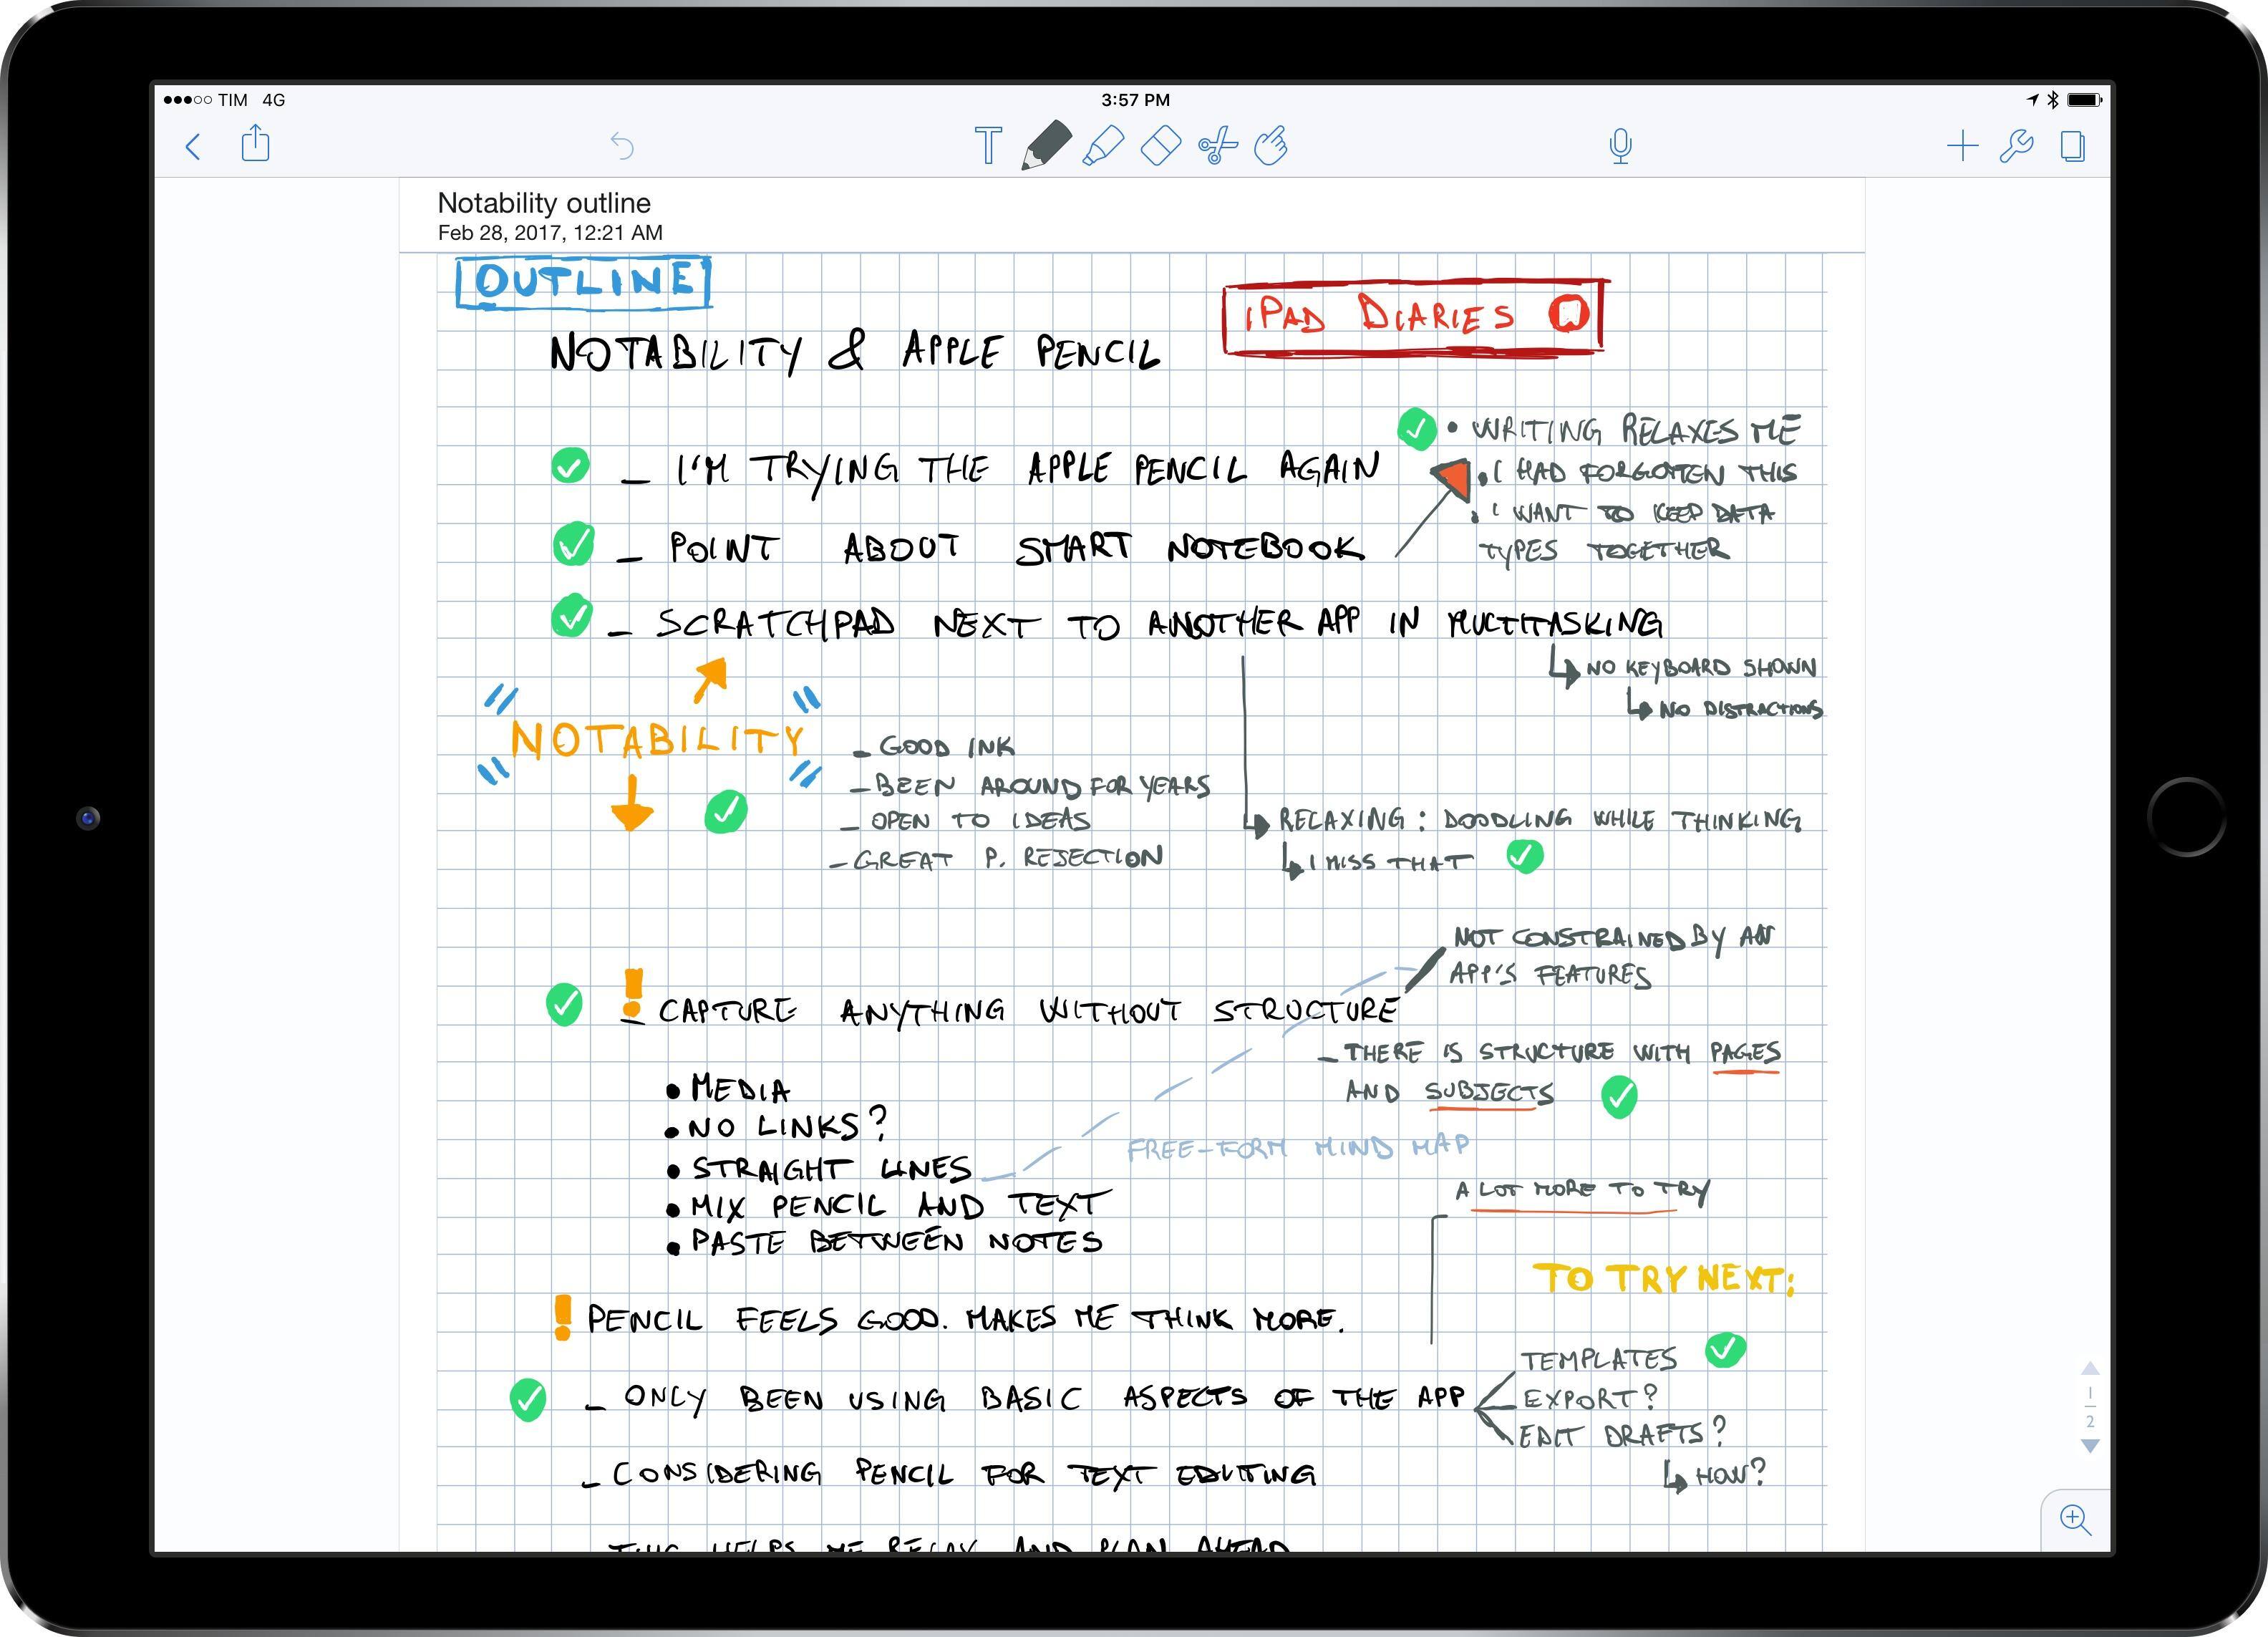 TIM 4G
3:57 PM
Notability outline
Feb 28, 2017, 12:21 AM
OUTLINE
iPAD DIARIES
NOTABILITY & APPLE PENCIL
• WRITING RELAXES ME
– I'M TRYING THE APPLE PENCIL AGAIN
• I HAD FORGOTTEN THIS
• I WANT TO KEEP DATA
TYPES TOGETHER
– POINT ABOUT SMART NOTEBOOK
– SCRATCHPAD NEXT TO ANOTHER APP IN MULTITASKING
NO KEYBOARD SHOWN
NO DISTRACTIONS
NOTABILITY
– GOOD INK
– BEEN AROUND FOR YEARS
– OPEN TO IDEAS
– GREAT P. REJECTION
RELAXING: DOODLING WHILE THINKING
I MISS THAT
NOT CONSTRAINED BY AN
APP'S FEATURES
! – CAPTURE ANYTHING WITHOUT STRUCTURE
– THERE IS STRUCTURE WITH PAGES
AND SUBJECTS
• MEDIA
• NO LINKS?
• STRAIGHT LINES
• MIX PENCIL AND TEXT
• PASTE BETWEEN NOTES
FREE-FORM MIND MAP
A LOT MORE TO TRY
TO TRY NEXT:
! PENCIL FEELS GOOD. MAKES ME THINK MORE.
– ONLY BEEN USING BASIC ASPECTS OF THE APP
TEMPLATES
EXPORT?
EDIT DRAFTS?
HOW?
– CONSIDERING PENCIL FOR TEXT EDITING
THIS HELPS ME RELAX AND PLAN AHEAD
1
2